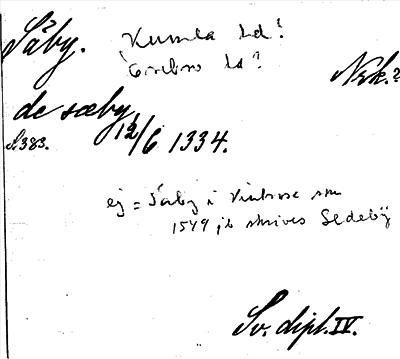 Säby. Kumla hd?
Örebro hd? Nrk.?
de sæby, 12/6 1334.
S. 383.
ej = Säby i Vintrosa sn
1549 jb skrives Sedeby
Sv. dipl. IV.